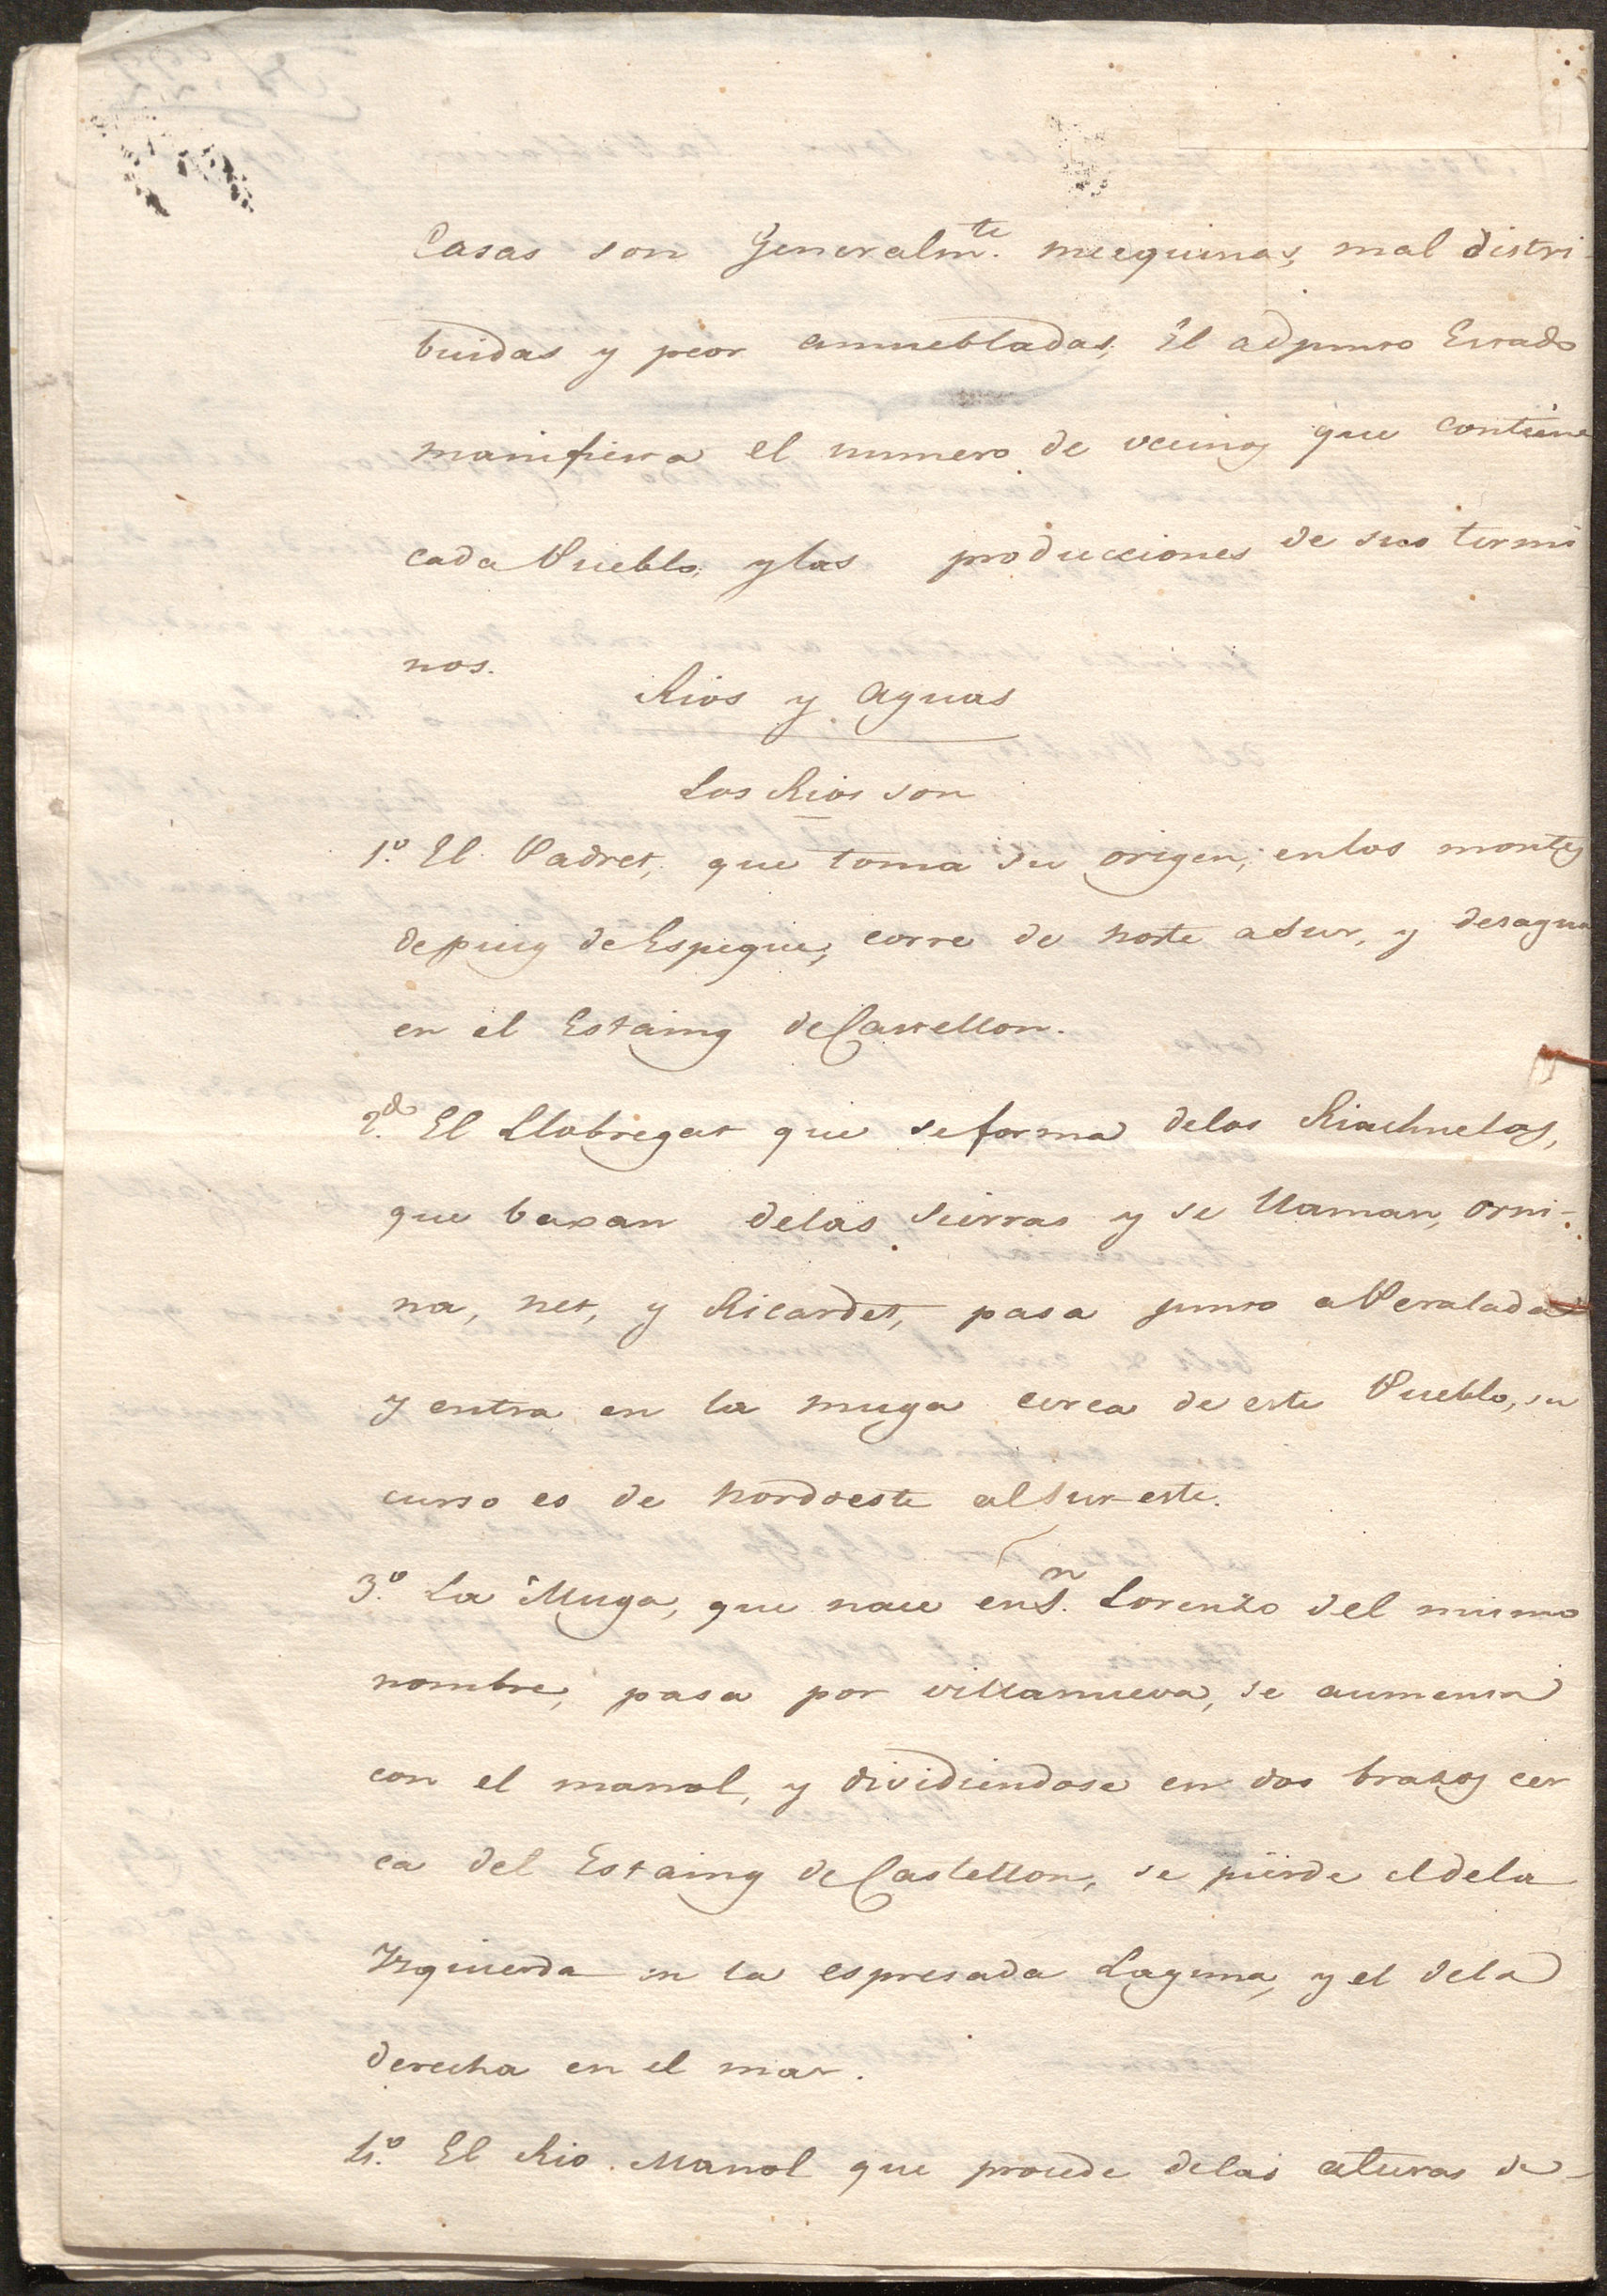 Casas son Generalmte. mezquinas, mal distri-
buidas y peor amuebladas; El adjunto Estado
manifiesta el numero de vecinos que contiene
cada Pueblo, y las producciones de sus termi
nos.
Rios y aguas
Los Rios son
1º. El Padret, que toma su origen, en los montes
de puig de Espegue, corre de norte a Sur, y desagua
en el Estaing de Castellon.
2º. El Llobregat que se forma de los Riachuelos,
que baxan de las sierras y se llaman, orni-
na, net, y Ricardet, pasa junto a Peralada
y entra en la muga cerca de este Pueblo, su
curso es de nordoeste al Sur-este.
3º. La Muga, que nace en Sn. Lorenzo del mismo
nombre, pasa por villanueva, se aumenta
con el manol, y dividiendose en dos brazos cer
ca del Estaing de Castellon, se pierde el de la
Yzquierda en la espresada Laguna, y el de la
derecha en el mar.
4º. El Rio Manol que procede de las alturas de